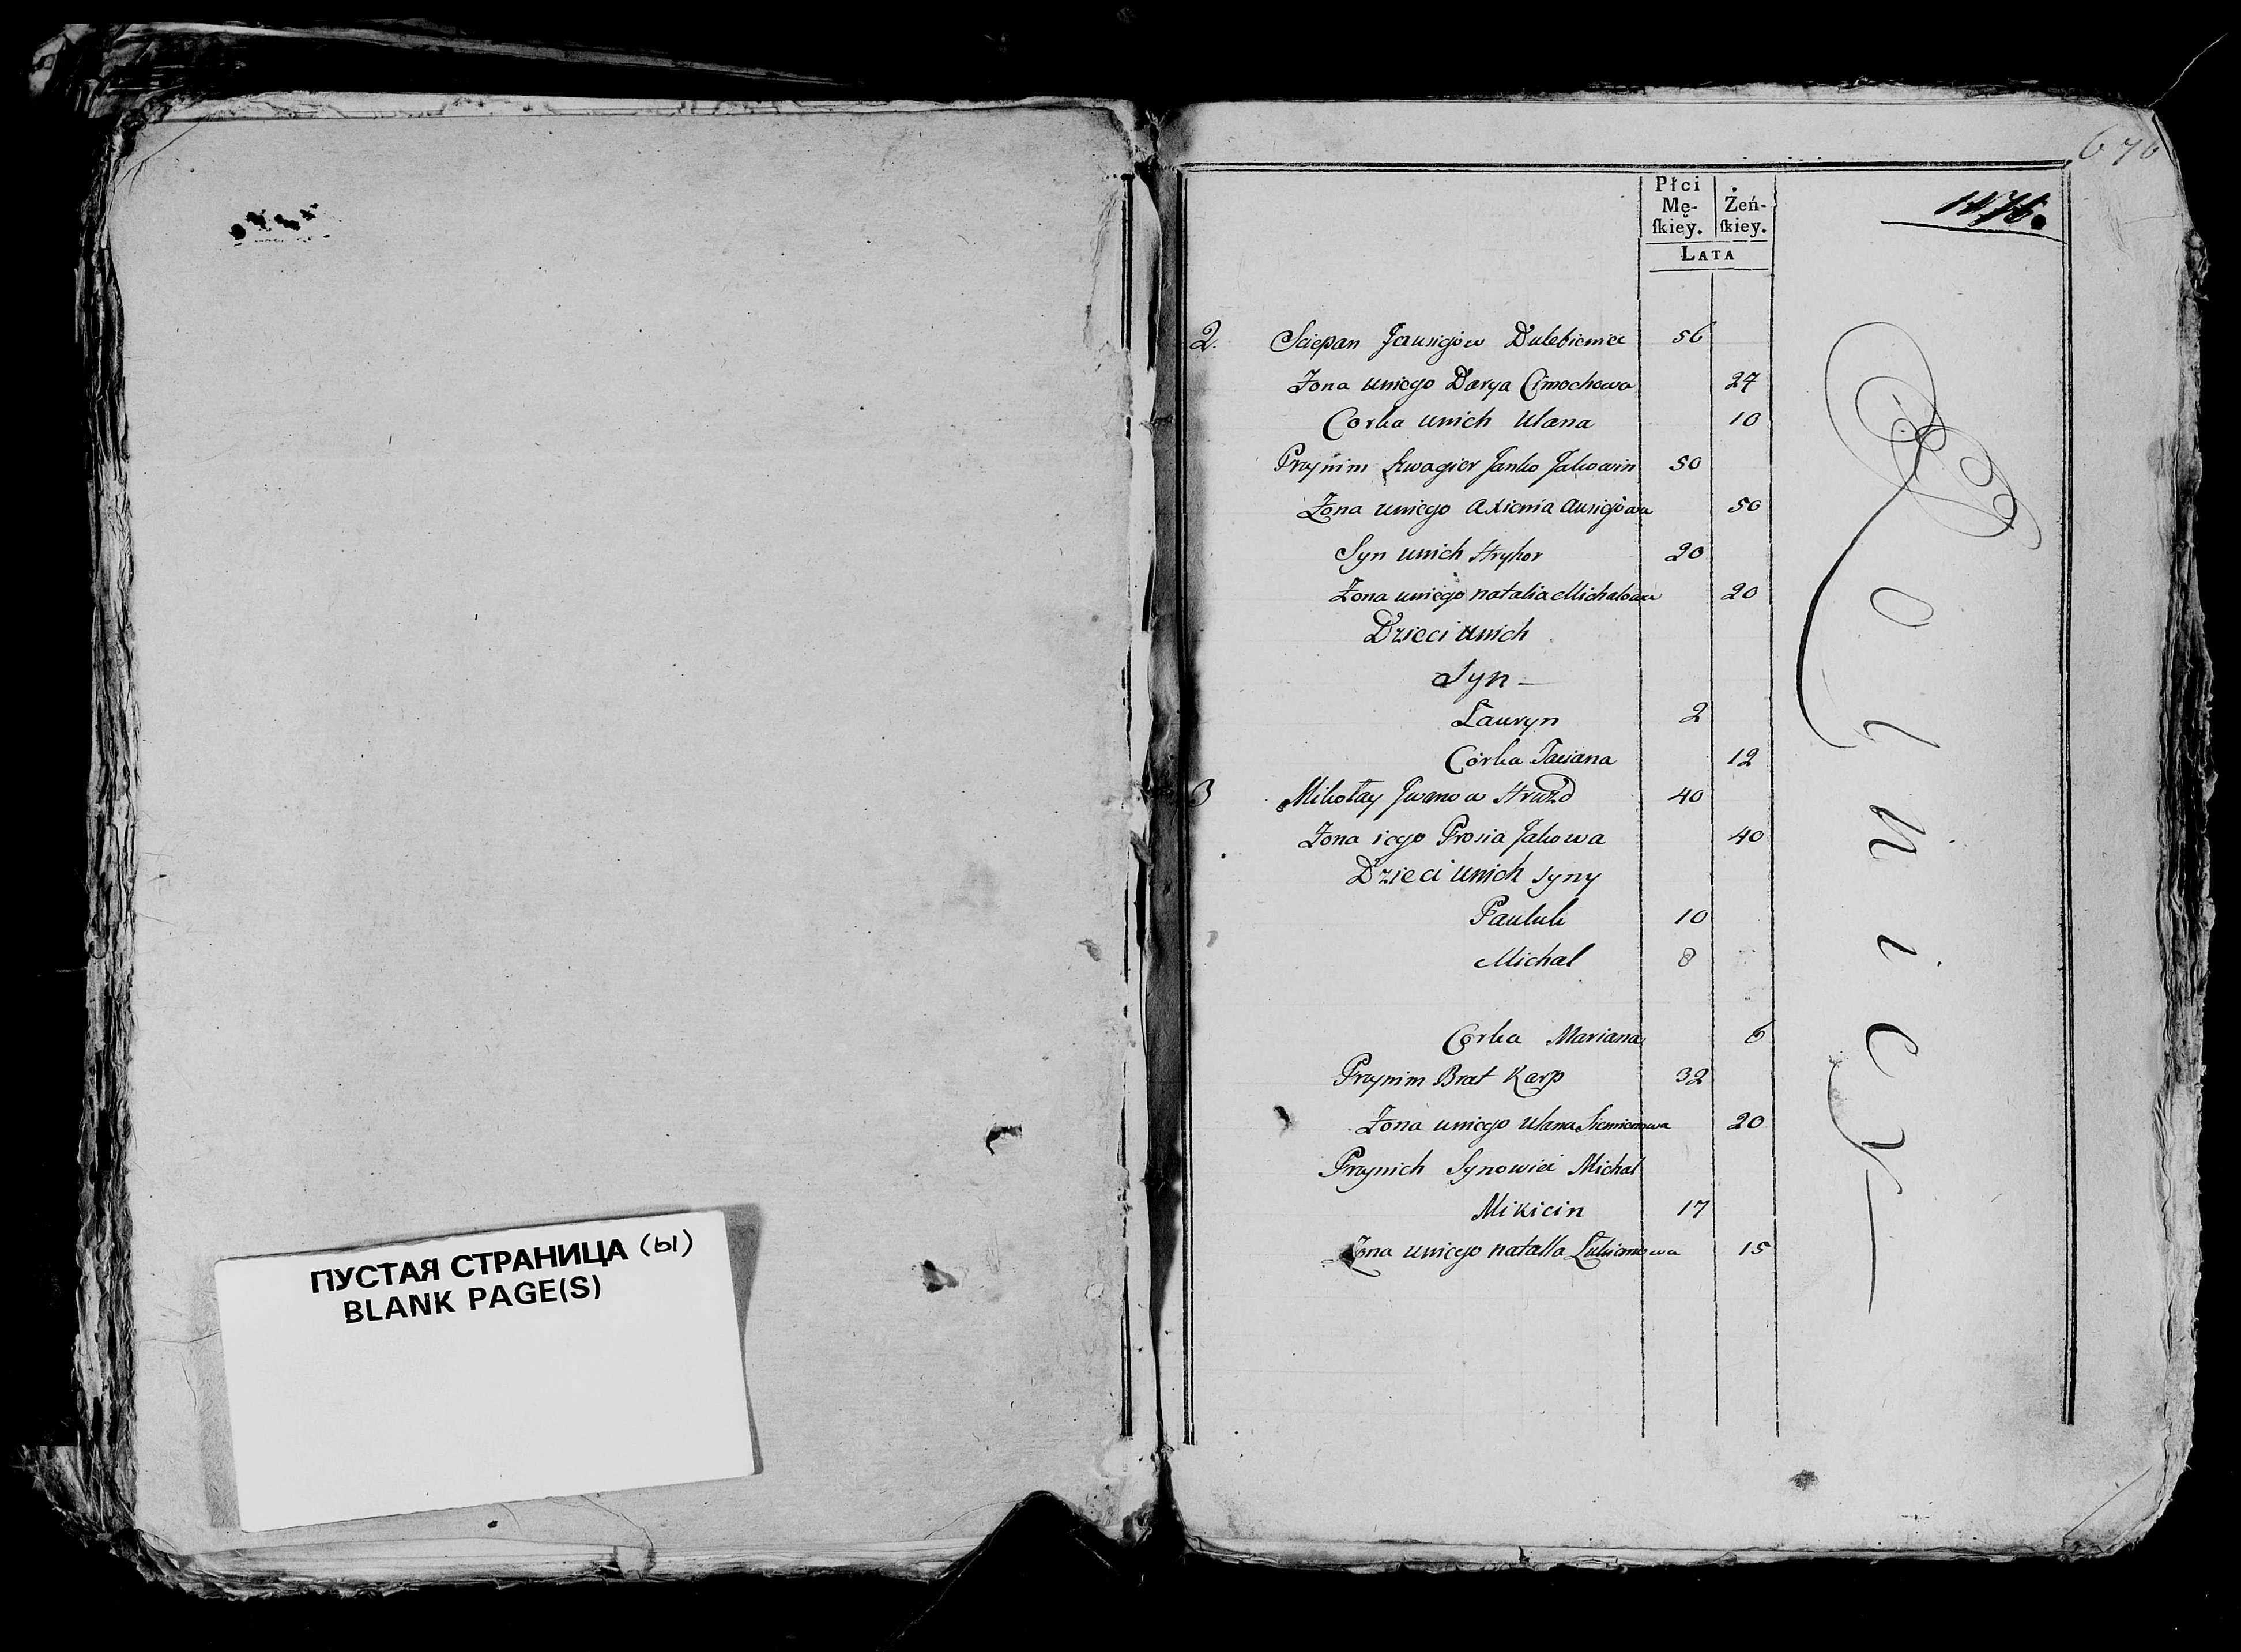 ПУСТАЯ СТРАНИЦА (ы)
BLANK PAGE(S)
676
Płci Mę-ſkiey. Żeń-ſkiey.
LATA
2. Sciepan Jausiejow Dulebieniec 56
Żona uniego Darya Cimochowa 27
Corka unich Ulana 10
Przynim Szwagier Janko Jakowin 50
Żona uniego Axienia Ausiejowa 50
Syn unich Hryhor 20
Żona uniego natalia Michałowa 20
Dzieci unich
Syn –
Lauryn 2
Córka Taciana 12
3 Mikołay Jwanow Hruzd 40
Żona iego Prosia Jakowa 40
Dzieci unich syny
Pauluk 10
Michal 8
Corka Mariana 6
Przynim Brat Karp 32
Żona uniego Ulana Siemionowa 20
Przynich Synowiec Michal
Mikicin 17
Żona uniego natalla Łukianowa 15
Rolnicy